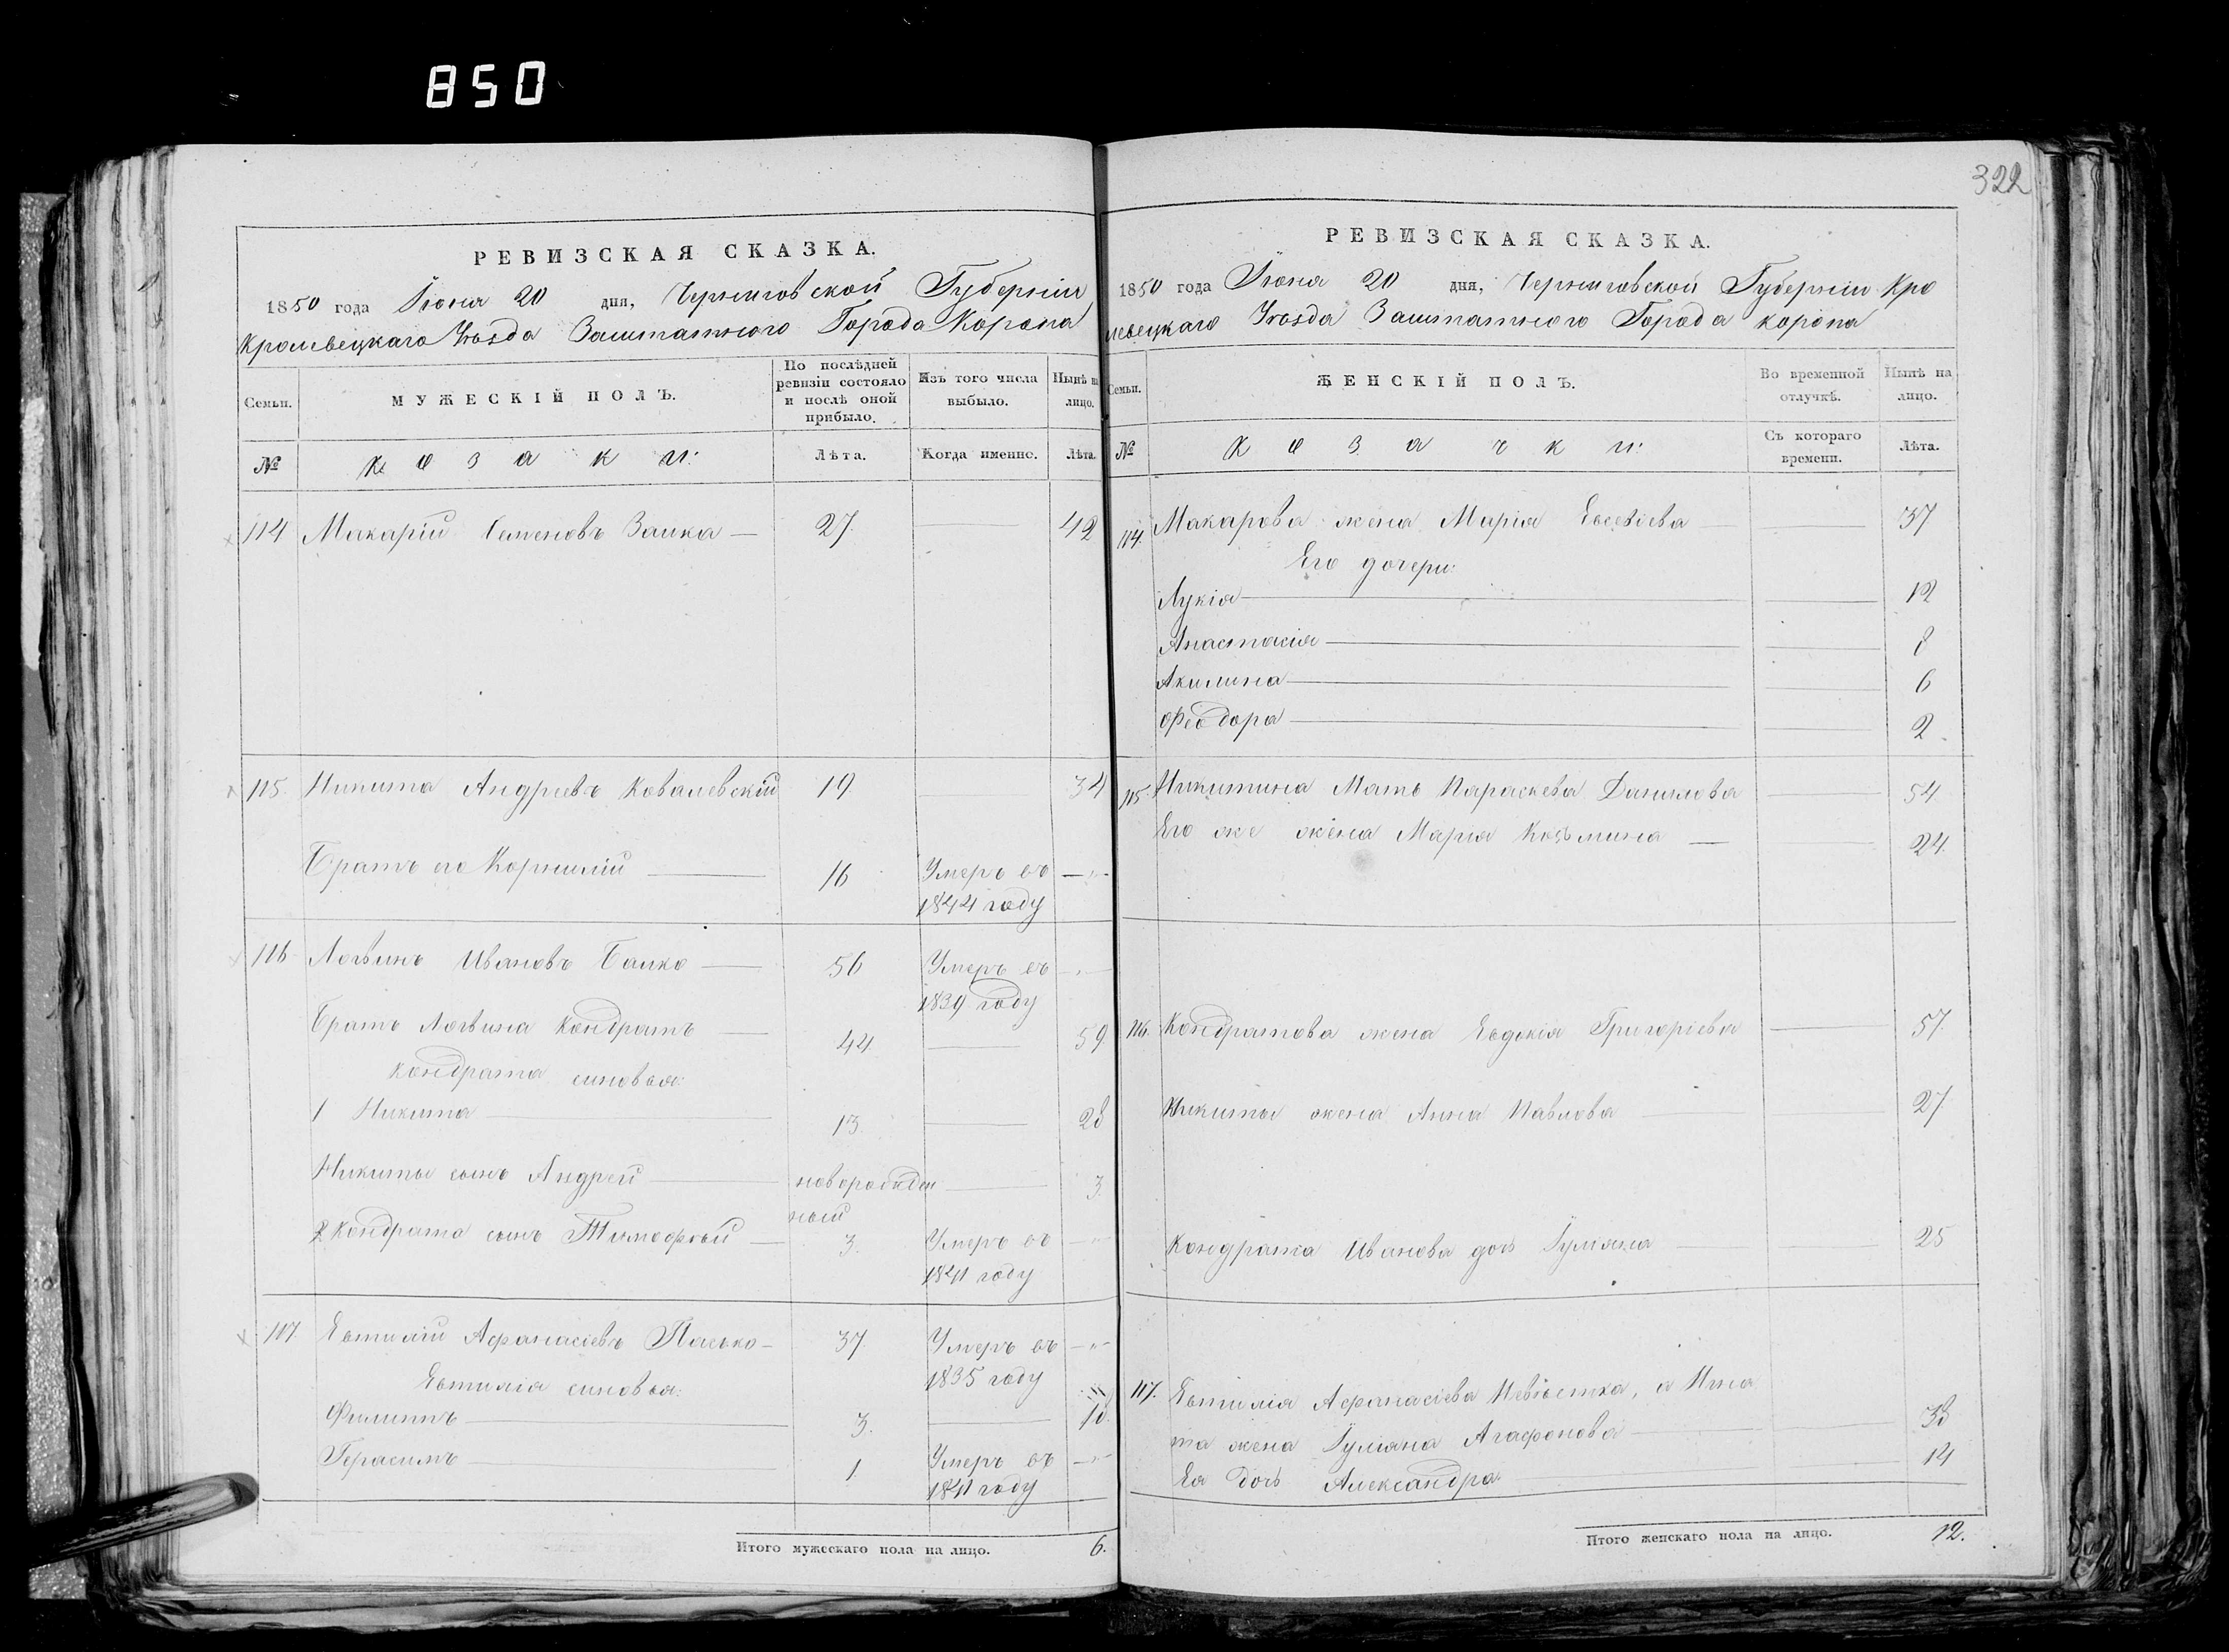 850
322
РЕВИЗСКАЯ СКАЗКА.
1850 года Іюня 20 дня, Черниговской Губерніи
Кролевецкаго Уѣзда Заштатного Города Коропа
Семьи.
МУЖЕСКІЙ ПОЛЪ.
По послѣдней ревизіи состояло и послѣ оной прибыло.
Изъ того числа выбыло.
Нынѣ на лицо.
№
Козаки:
Лѣта.
Когда именно.
Лѣта.
114 Макарій Семеновъ Заика — 27. — 42
115. Никита Андреевъ Ковалевскій 19 34
Братъ его Корнилій — 16 Умеръ въ — „ -
1844 году
116 Логвинъ Ивановъ — 56 Умеръ въ — „ —
1839 году
Братъ Логвина Кондратъ — 44. — 59.
Кондрата синовья:
1 Никита — 13. — 28
Никиты сынъ Андрей — новорожден — 3.
ный
2 Кондрата сынъ Тимофѣй — 3. Умеръ въ — „
1841 году
117. Евтихій Афанасіевъ Пасько - 37. Умеръ въ — „ -
1835 году
синовья:
Филиппъ — 3. — 18.
Герасимъ — 1 Умеръ въ — „ -
1841 году
Итого мужескаго пола на лицо. 6.
РЕВИЗСКАЯ СКАЗКА.
1850 года Іюня 20 дня, Черниговской Губерніи Кро
левецкаго Уѣзда Заштатного Города Коропа
Семьи.
ЖЕНСКІЙ ПОЛЪ.
Во временной отлучкѣ.
Нынѣ на лицо.
№
Козачки:
Съ котораго времени.
Лѣта.
114. Макарова жена Марія Евсевіева — 37
Его дочери:
Лукія — — 12
Анастасія — — 8
Акилина — — 6
Феодора — — 2.
115. Никитина Мать Параскева Данилова — 54
Его же жена Марія Козьмина — — 24.
116. Кондратова жена Евдокія Григоріева — 57.
Никиты жена Анна Павлова — 27
Кондрата Иванова дочь Іуліяна — 25
117. Афанасіева Невѣстка, а
та жена Іуліяна Агафонова — 38
Ея дочь Александра — 14
Итого женскаго пола на лицо. 12.